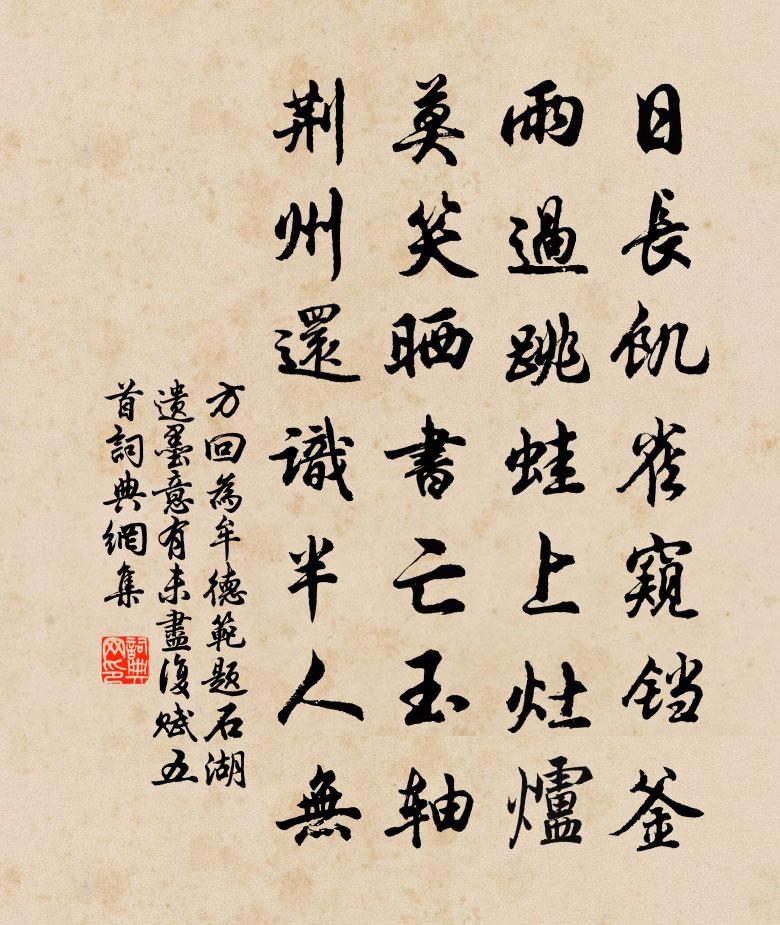 日長飢雀窺铛釜
雨過跳蛙上灶爐
莫笑晒書亡玉轴
荆州還識半人無
方回為牟德範题石湖
遺墨意有未盡復赋五
首詞典網集
詞典网印